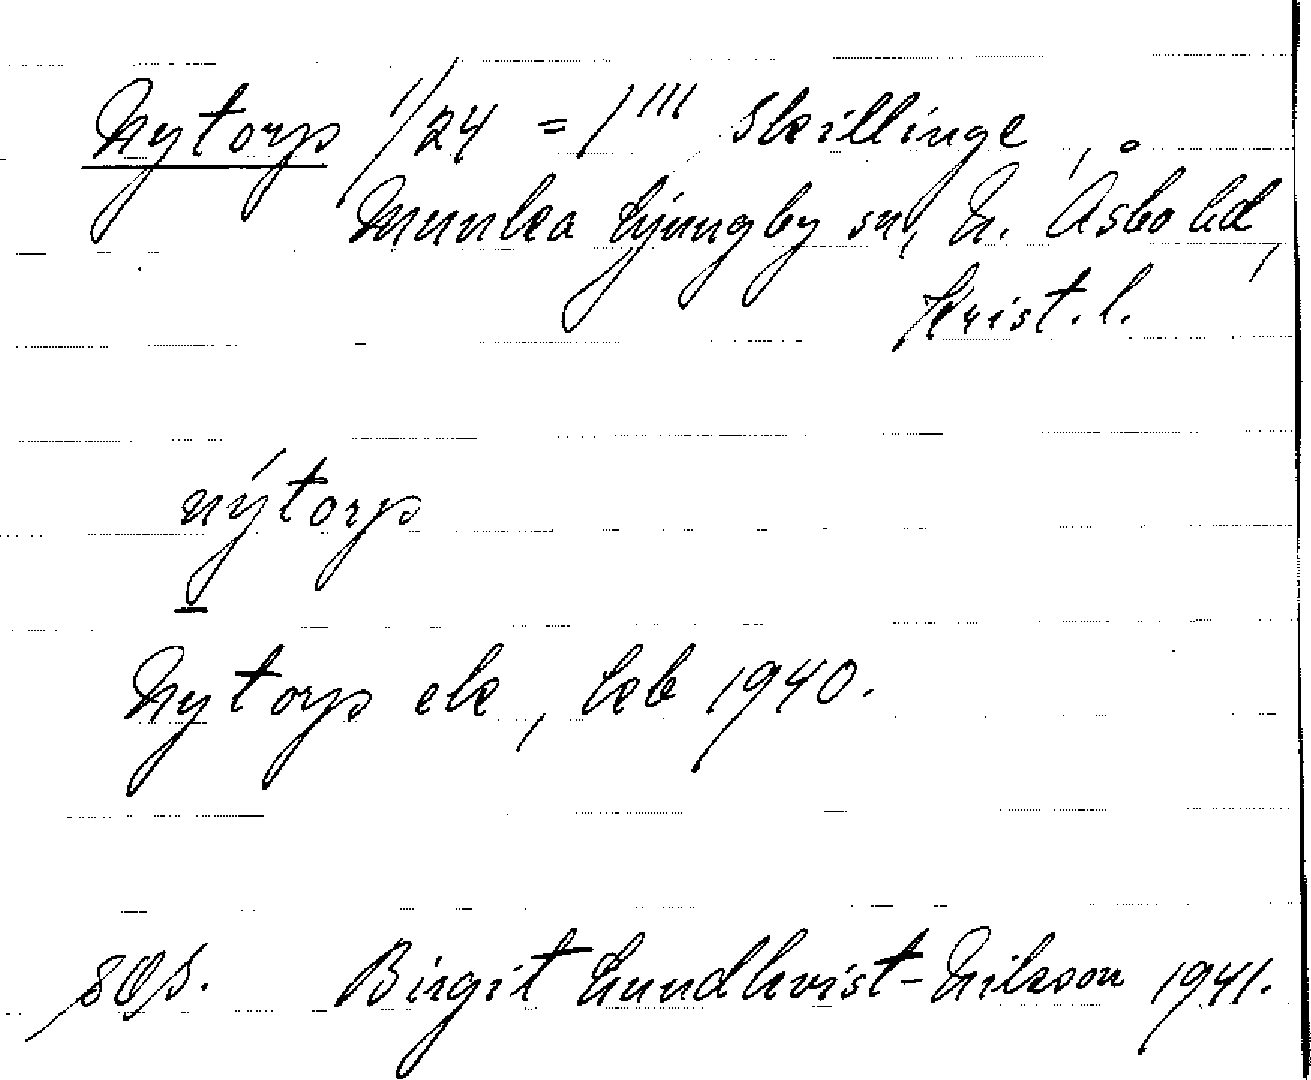 Nytorp 1/24 = 1 ''' Skillinge,
Munka Ljungby sn, N. Åsbo hd,
Krist. l.
nýtorp
Nytorp ek, kb 1940.
Birgit Lundkvist-Nilsson 1941.